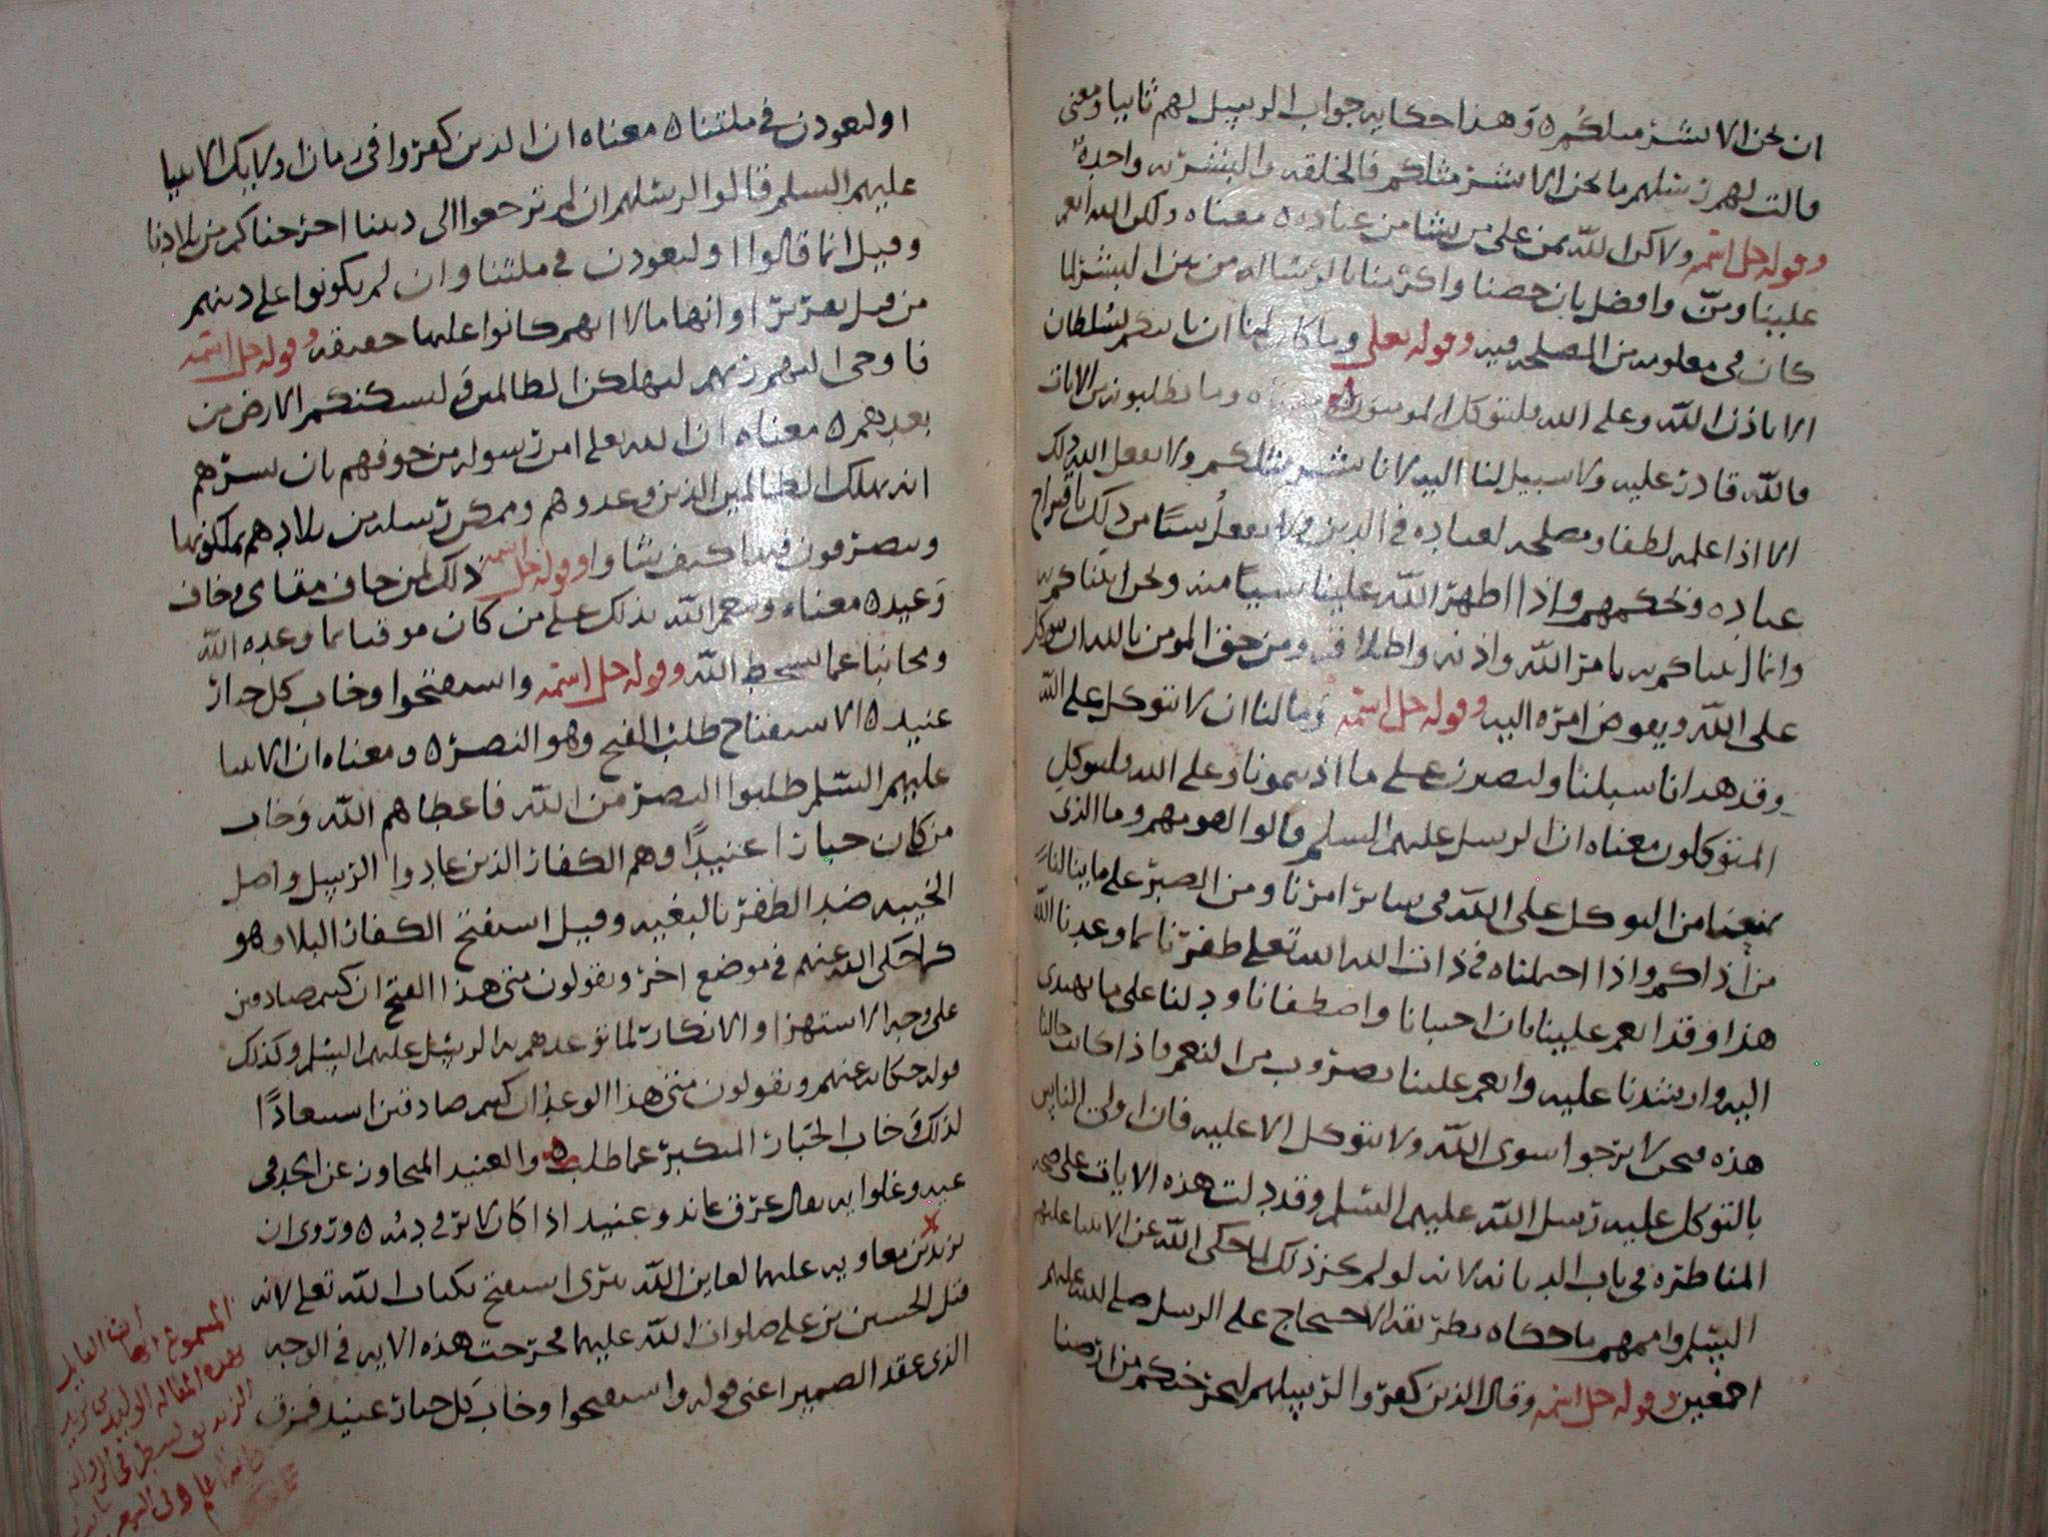 ان نحن الا بشر مثلكم ٥ وهذا حكايه جواب الرسل لهم ثانيا ومعنى
قالت لهم رسلهم ما نحن الا بشر مثلكم فى الخلقه والبشريه واحدة
وقوله جل اسمه ولاكن الله يمن على من يشا من عباده ٥ معناه ولكن الله انعم
علينا ومنّ وافضل بان خصنا واكرمنا بالرساله من بين البشر لما
كان فى معلومه من المصلحه فيه وقوله تعلى وما كان لنا ان ناتيكم بسلطان
الا باذن الله وعلى الله فليتوكل المومنون ٥ معناه وما تطلبونه من الايات
فالله قادر عليه ولا سبيل لنا اليه لانا بشر مثلكم ولا يفعل الله ذلك
الا اذا علمه لطفا ومصلحه لعباده فى الدين ولا يفعل شيئا من ذلك باقتراح
عباده وتحكمهم واذا اظهر الله علينا شيئا منه ونحن اتيناكم به
وانما اتيناكم به بامر الله واذنه واطلاقه ومن حق المومن بالله ان يتوكل
على الله ويفوض امره اليه وقوله جل اسمه وما لنا ان لا نتوكل على الله
وقد هدانا سبلنا ولنصبرن على ما اذيتمونا وعلى الله فليتوكل
المتوكلون معناه ان الرسل عليهم السلم قالوا لقومهم وما الذى
يمنعنا من التوكل على الله فى ساير امرنا ومن الصبر على ما ينالنا
من اذاكم واذا احتملناه فى ذات الله الله تعلى ظفرنا بما وعدنا الله
هذا وقد انعم علينا بان احبانا واصطفانا ودلنا على ما يهدى
اليه وارشدنا عليه وانعم علينا بضروب من النعم فاذا كانت حالنا
هذه فنحن لا نرجوا سوى الله ولا نتوكل الا عليه فان اولى الناس
بالتوكل عليه رسل الله عليهم السلم وقد دلت هذه الايات على صحه
المناظره فى باب الديانه لانه لو لم يكن ذلك لما حكى الله عن الانبيا عليهم
السلم واممهم ما حكاه بطريقه الاحتجاج على الرسل صلى الله عليهم
اجمعين وقوله جل اسمه وقال الذين كفروا لرسلهم لنخرجنكم من ارضنا
او لتعودن فى ملتنا ٥ معناه ان الذين كفروا فى زمان اولايك الانبيا
عليهم السلم قالوا لرسلهم ان لم ترجعوا الى ديننا اخرجناكم من بلادنا
وقيل انما قالوا او لتعودن فى ملتنا وان لم يكونوا على دينهم
من قبل تعزيرا وانهاما لا انهم كانوا عليها حقيقه وقوله جل اسمه
فاوحى اليهم ربهم لنهلكن الظالمين ولنسكننكم الارض من
بعدهم ٥ معناه ان الله تعلى امن رسوله من خوفهم بان بشرهم
انه يهلك الظالمين الذين وعدوهم وممكن رسله من بلادهم يملكونها
ويتصرفون فيها كيف شاوا وقوله جل اسمه ذلك لمن خاف مقامى وخاف
وعيد ٥ معناه وينعم الله بذلك على من كان موقنا بما وعده الله
ومجانبا عما يسخط الله وقوله جل اسمه واستفتحوا وخاب كل جبار
عنيد ٥ الاستفتاح طلب الفتح وهو النصر ٥ ومعناه ان الانبيا
عليهم السلم طلبوا النصر من الله فاعطاهم الله وخاب
من كان جبارا عنيدًا وهم الكفار الذين عادوا الرسل واصل
الخيبه ضد الظفر بالبغيه وقيل استفتح الكفار البلا وهو
كما حكى الله عنهم فى موضع اخر ويقولون متى هذا الفتح ان كنتم صادقين
على وجه الاستهزا والانكار لما توعدهم به الرسل عليهم السلم وكذلك
قوله حكايه عنهم ويقولون متى هذا الوعد ان كنتم صادقين استبعادًا
لذلك وخاب الجبار المتكبر عما طلب ٥ والعنيد المتجاوز عن الحد فى
عيه وغلوايه يقال عرق عاند وعنيد اذا كان لا يرقى دمه ٥ وروى ان
يزيد بن معاويه عليهما لعاين الله تترى استفتح بكتاب الله تعلى لانه
قتل الحسين بن على صلوات الله عليهما فخرجت هذه الايه فى الوجه
الذى عقد الضمير اعنى قوله واستفتحوا وخاب كل جبار عنيد فمزق
المسموع ان القايل
بهذه المقاله الوليد بن يزيد
الزنديق